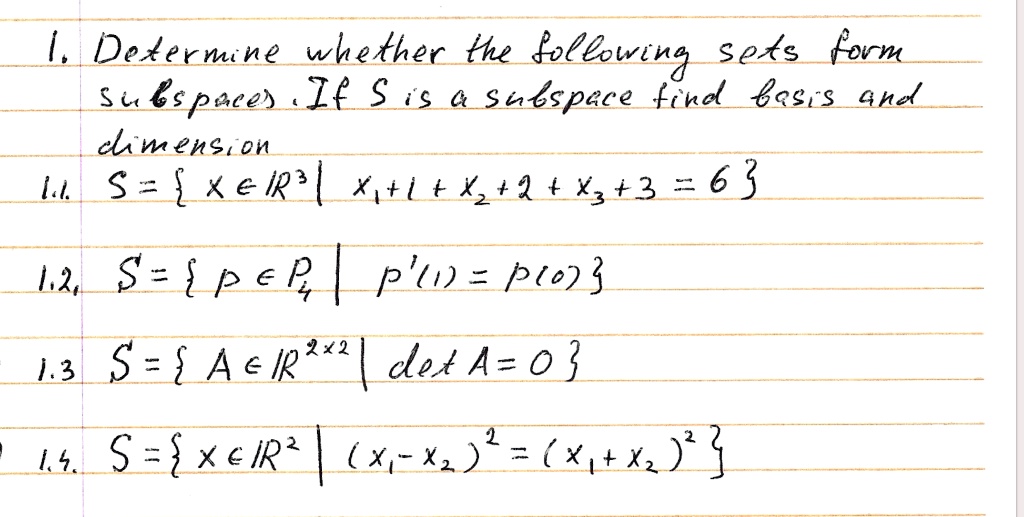 1. Determine whether the following sets form
subspaces. If S is a subspace find basis and
dimension
1.1. S = { x ∈ ℝ³ | x₁+1 + x₂+2 + x₃+3 = 6 }
1.2. S = { p ∈ P₄ | p'(1) = p(0) }
1.3 S = { A ∈ ℝ²ˣ² | det A = 0 }
1.4. S = { x ∈ ℝ² | (x₁ - x₂)² = (x₁ + x₂)² }